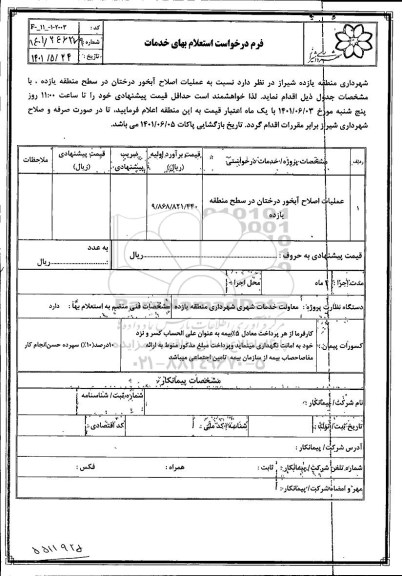 کد : F-11-1-2003
شماره : ۱۴۰۱/۲۴۶۲۷
تاریخ : ۱۴۰۱/۵/۲۴
فرم درخواست استعلام بهای خدمات
شهرداری منطقه یازده شیراز در نظر دارد نسبت به عملیات اصلاح آبخور درختان در سطح منطقه یازده ، با
مشخصات جدول ذیل اقدام نماید. لذا خواهشمند است حداقل قیمت پیشنهادی خود را تا ساعت ۱۱:۰۰ روز
پنج شنبه مورخ ۱۴۰۱/۰۶/۰۳ با یک ماه اعتبار قیمت به این منطقه اعلام فرمایید، تا در صورت صرفه و صلاح
شهرداری شیراز برابر مقررات اقدام گردد. تاریخ بازگشایی پاکات ۱۴۰۱/۰۶/۰۵ می باشد.
ردیف مشخصات پروژه/خدمات درخواستی قیمت برآورد اولیه (ریال) ضریب پیشنهادی قیمت پیشنهادی (ریال) ملاحظات
۱ عملیات اصلاح آبخور درختان در سطح منطقه یازده ۹/۸۶۸/۸۲۱/۴۴۰
قیمت پیشنهادی به حروف : ریال
به عدد : ریال
مدت اجرا : ۲ ماه محل اجرا :
دستگاه نظارت پروژه : معاونت خدمات شهری شهرداری منطقه یازده مشخصات فنی منضم به استعلام بها : دارد
کسورات پیمان : کارفرما از هر پرداخت معادل ۵٪بیمه به عنوان علی الحساب کسر و نزد
خود به امانت نگهداری مینماید وپرداخت مبلغ مذکور منوط به ارائه
مفاصاحساب بیمه از سازمان بیمه تامین اجتماعی میباشد
۱۰درصد(۱۰٪) سپرده حسن انجام کار
۰۲۱-۸۸۳۴۹۶۷۰-۵
مشخصات پیمانکار
نام شرکت/ پیمانکار : شماره ثبت/ شناسنامه :
تاریخ ثبت/ تولد : شناسه/ کد ملی : کد اقتصادی :
آدرس شرکت/ پیمانکار :
شماره تلفن شرکت/ پیمانکار : ثابت : همراه : فکس :
مهر و امضاء شرکت/ پیمانکار :
۵۵۱۱۹۲۵